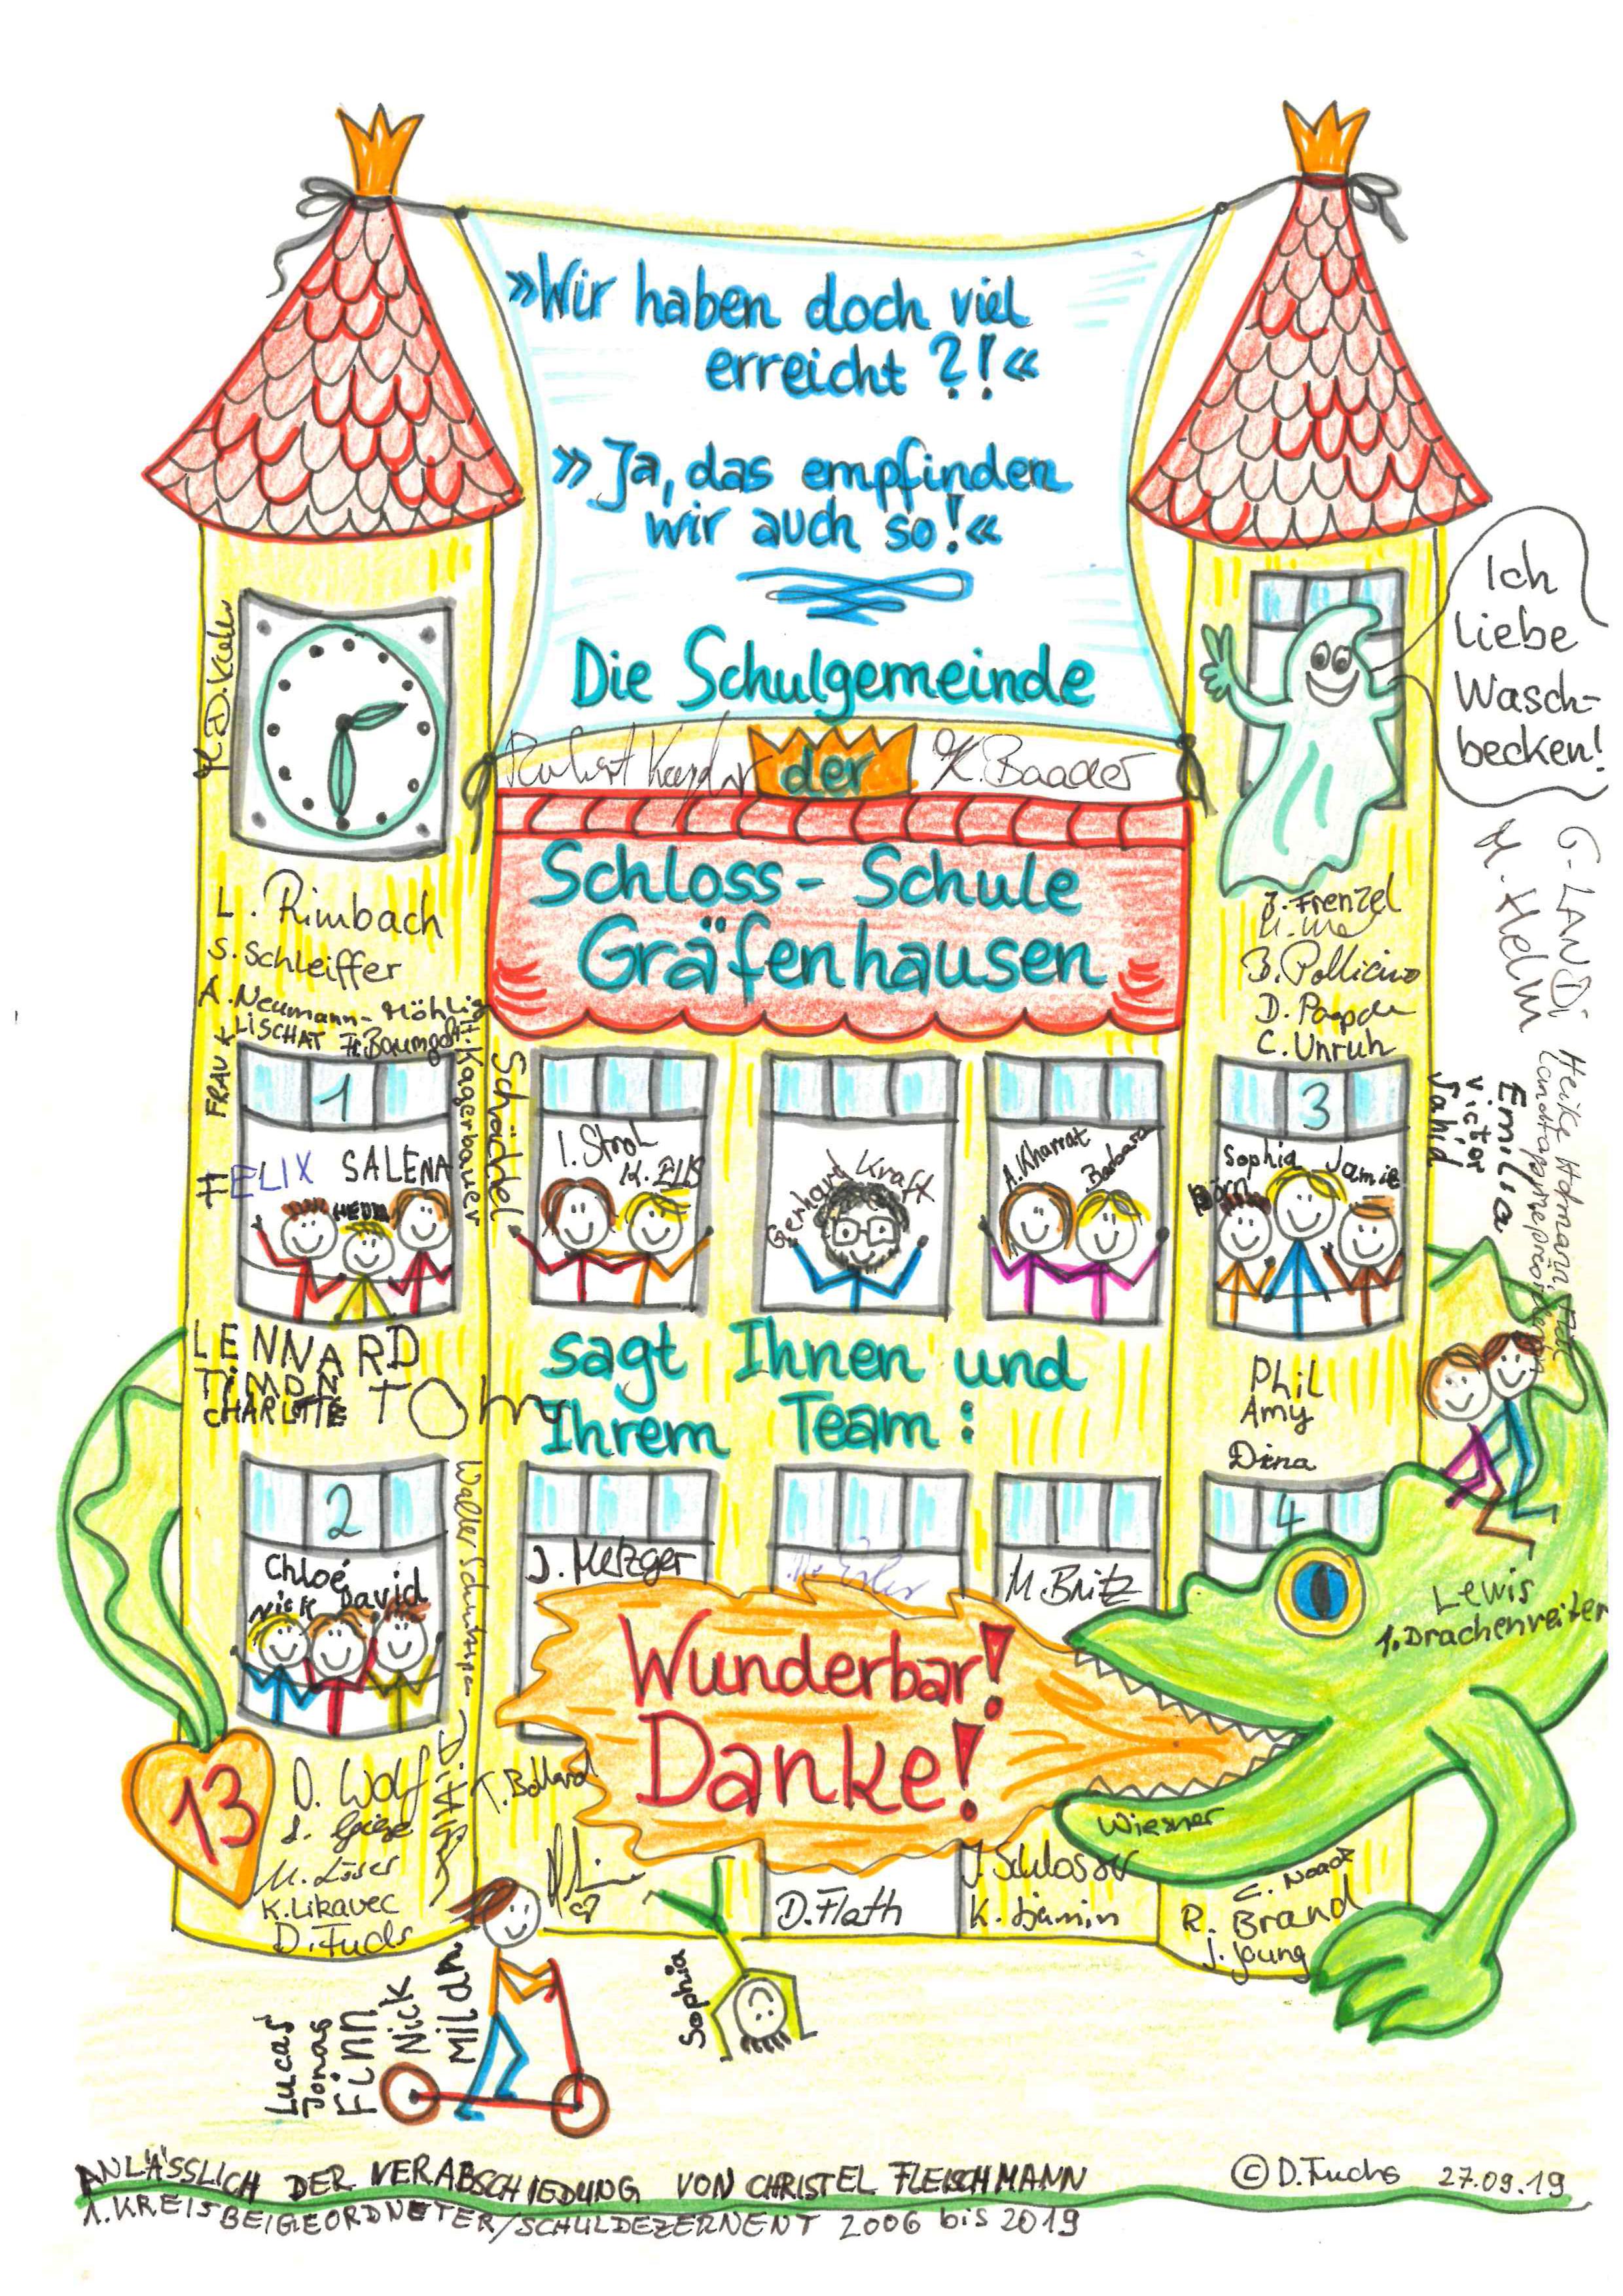 »Wir haben doch viel
erreicht ?!«
»Ja, das empfinden
wir auch so!«
Die Schulgemeinde
der
K. Baader
Schloss-Schule
Gräfenhausen
Ich
liebe
Wasch-
becken!
L. Rimbach
S. Schleiffer
A. Neumann-Möhlig
FRAU K LISCHAT
Kagerbauer
Schächtel
J. Frenzel
B. Pollicino
C. Unruh
G-LANDi
H. Helm
Heike Hofmann
Emilia
Victor
Vahid
1
HELIX SALENA
HEDDA
I. Stroh
K. Elis
Gerhart Kraft
A. Kharrat
Barbara
3
Sophia Jamie
Björn
LENNARD
TIMON
CHARLOTTE TOM
sagt Ihnen und
Ihrem Team:
Phil
Amy
Dina
2
Chloé
Nick David
J. Metzger
M. Britz
4
Lewis
1. Drachenreiter
Wunderbar!
Danke!
13
D. Wolf
K. Likavec
D. Fuchs
Wiesner
J. Schlosser
D. Flath
C. Noack
R. Brand
J. Young
Lucas
Jonas
Finn
Nick
Milan
Sophia
ANLÄSSLICH DER VERABSCHIEDUNG VON CHRISTEL FLEISCHMANN
1. KREISBEIGEORDNETER/SCHULDEZERNENT 2006 bis 2019
© D. Fuchs 27.09.19